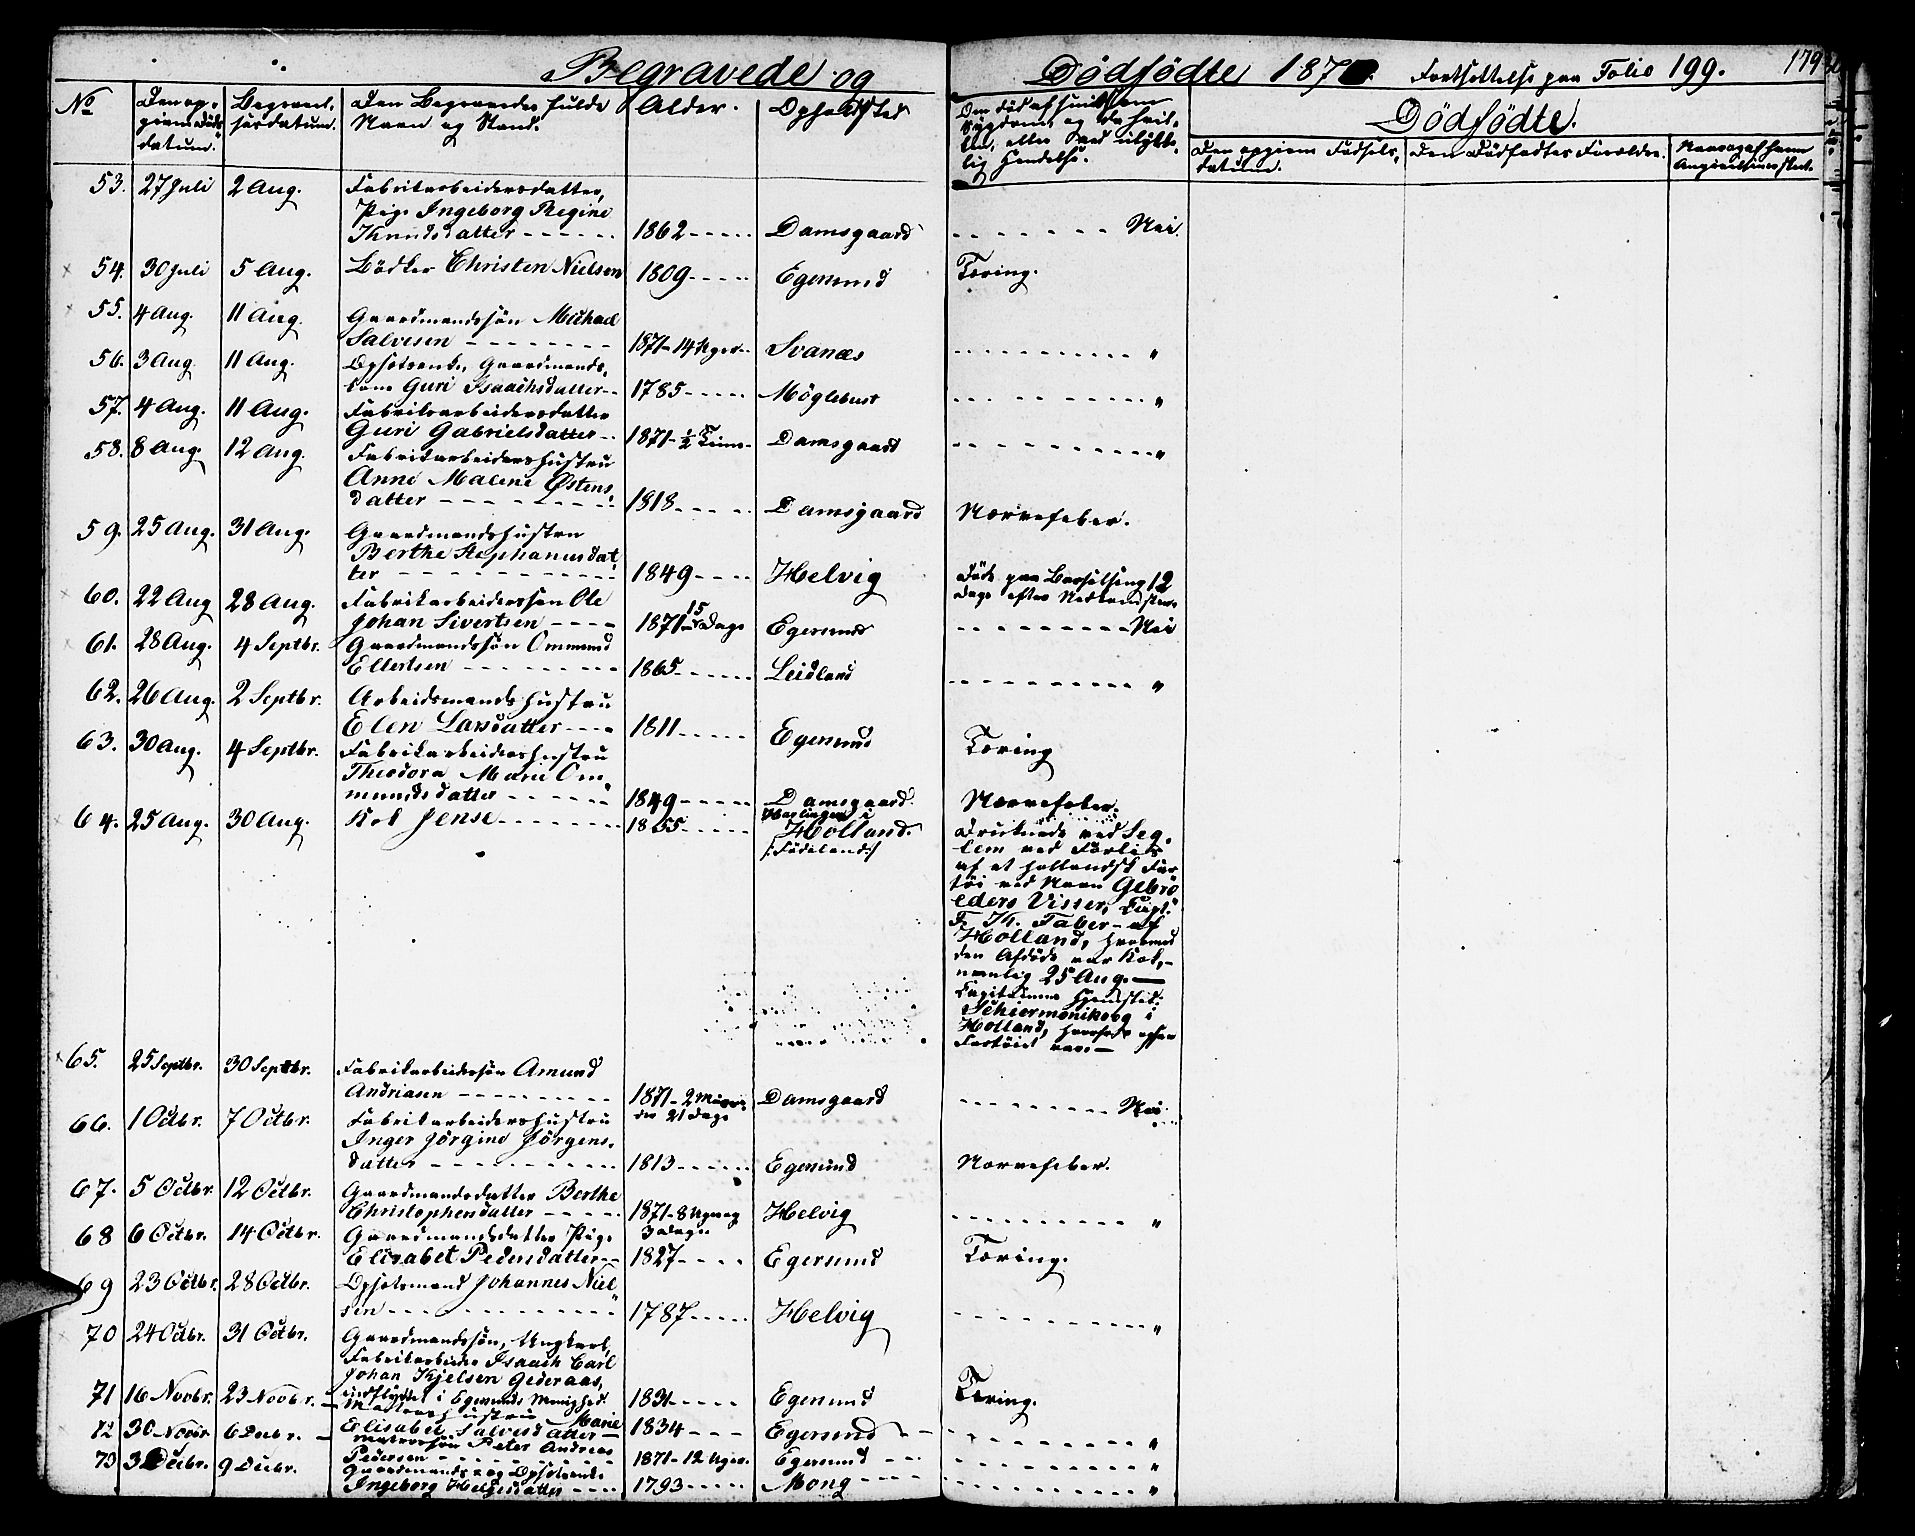 Begravede og Dödfödte 1871. Fortsættelse paa Folio 199. 179
No
Den op-
givne Döds-
datum.
Begravel-
sesdatum.
Den Begravedes fulde
Navn og Stand.
Alder.
Opholdssted
Dödfödte.
Den opgivne Födsels-
datum.
Den Dödfödtes Forældre.
53. 27 Juli 2 Aug. Fabrikarbeidersdatter,
Pige Ingeborg Regine
Knudsdatter 1862 Damsgaard Nei.
54. 30 Juli 5 Aug. Bödker Christen Nielsen 1809 Egersund Tæring.
55. 4 Aug. 11 Aug. Gaardmandssön Michael
Salvesen 1871 - 14 Uger Svanæs "
56. 3 Aug. 11 Aug. Opsötsenke, Gaardmands-
kone Guri Isaachsdatter 1785 Möglebust "
57. 4 Aug. 11 Aug. Fabriksarbeidersdatter
Guri Gabrielsdatter 1871 - ½ Time Damsgaard "
58. 8 Aug. 12 Aug. Fabrikarbeidershustru
Anne Malene Østens-
datter 1818 Damsgaard Nervefeber.
59. 25 Aug. 31 Aug. Gaardmandshustru
Berthe Stephanusdat-
ter 1849 Helvig Döde paa Barselseng 12
Dage efter Nedkomsten.
60. 22 Aug 28 Aug. Fabrikarbeiderssön Ole
Johan Sivertsen 1871 - 15 Dage Egersund Nei
61. 28 Aug. 4 Septbr. Gaardmandssön Ommund
Ellertsen 1865 Leidland "
62. 26 Aug. 2 Septbr. Arbeidsmandshustru
Elen Larsdatter 1811 Egersund Tæring
63. 30 Aug. 4 Septbr. Fabrikarbeidershustru
Theodora Marie Om-
mundsdatter 1849 Damsgaard. Nervefeber.
64. 25 Aug. 30 Aug. Kok Jense 1855 Harlingen i
Holland.
/: Födeland :/
Druknede ved Seg-
lem ved Forlis
af et hollandsk Far-
töi ved Navn Gebrö-
eders Visser, Capt.
F. Th. Faber - af
Holland, hvormed
den Afdöde var Kok,
nemlig 25 Aug. -
Capitainens Hjemsted:
Schiermonikoog i
Holland, hvorfra ogsaa
Fartöiet var. -
65. 25 Septbr. 30 Septbr. Fabrikarbeidersön Amund
Andriasen 1871 - 2 Maane-
der 21 Dage Damsgaard Nei
66. 1 Octbr. 7 Octbr. Fabrikarbeidershustru
Inger Jörgine Jörgens-
datter 1813 Egersund Nervefeber.
67. 5 Octbr. 12 Octbr. Gaardmandsdatter Berthe
Christophersdatter 1871 - 8 Uger og
3 Dage Helvig "
68 6 Octbr. 14 Octbr. Gaardmandsdatter Pige
Elisabet Pedersdatter 1827 Egersund Tæring.
69 23 Octbr. 28 Octbr. Opsötsmand Johannes Niel-
sen 1787 Helvig "
70 24 Octbr. 31 Octbr. Gaardmandssön, Ungkarl,
Fabrikarbeider Isaach Carl
Johan Kjelsen Gederaas,
indflyttet i Egersunds Menighed. 1831 Egersund Tæring.
71 16 Novbr. 23 Novbr. Matroshustru Marie
Elisabet Salvesdatter 1834 Egersund "
72 30 Novbr. 6 Decbr. Matrossön Peter Andreas
Pedersen 1871 - 12 Uger Egersund "
73 3 Decbr. 9 Decbr. Gaardmands- og Opsötsenke
Ingeborg Helgesdatter 1793 Mong "